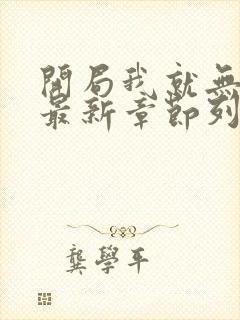 開局我就無
最新章節列
龔學平